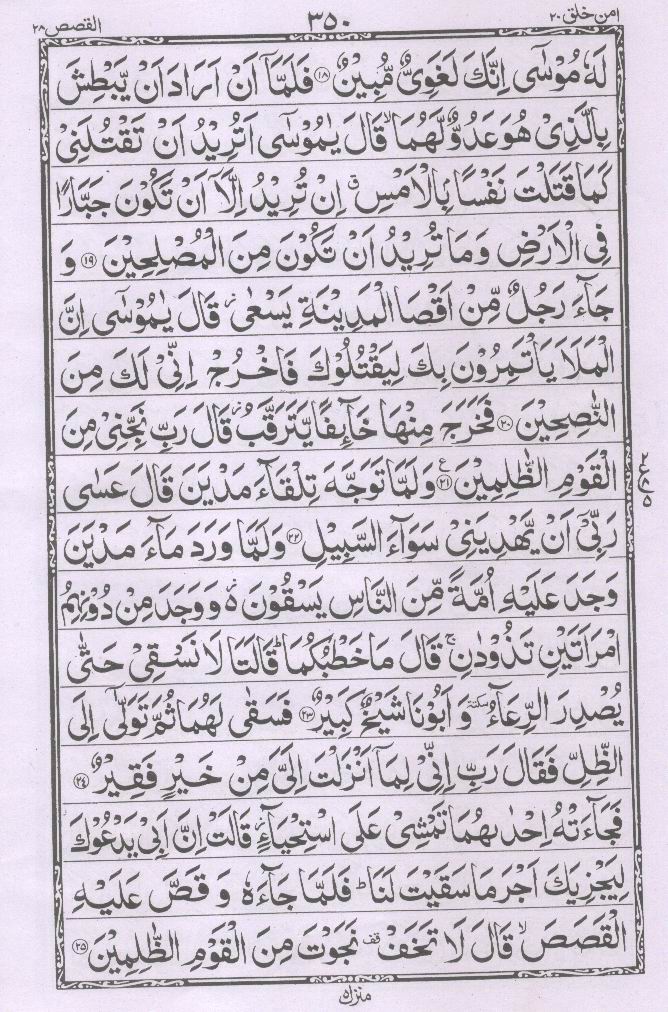 امن خلق ٢٠ ٣٥٠ القصص ٢٨
لَهٗ مُوْسٰۤى اِنَّكَ لَغَوِىٌّ مُّبِيْنٌ ﴿١٨﴾ فَلَمَّاۤ اَنْ اَرَادَ اَنْ يَّبْطِشَ
بِالَّذِىْ هُوَ عَدُوٌّ لَّهُمَا ۙ قَالَ يٰمُوْسٰۤى اَتُرِيْدُ اَنْ تَقْتُلَنِىْ
كَمَا قَتَلْتَ نَفْسًۢا بِالْاَمْسِ ۖ اِنْ تُرِيْدُ اِلَّاۤ اَنْ تَكُوْنَ جَبَّارًا
فِى الْاَرْضِ وَمَا تُرِيْدُ اَنْ تَكُوْنَ مِنَ الْمُصْلِحِيْنَ ﴿١٩﴾ وَ
جَآءَ رَجُلٌ مِّنْ اَقْصَا الْمَدِيْنَةِ يَسْعٰى ۫ قَالَ يٰمُوْسٰۤى اِنَّ
الْمَلَاَ يَاْتَمِرُوْنَ بِكَ لِيَقْتُلُوْكَ فَاخْرُجْ اِنِّىْ لَكَ مِنَ
النّٰصِحِيْنَ ﴿٢٠﴾ فَخَرَجَ مِنْهَا خَآئِفًا يَّتَرَقَّبُ ۫ قَالَ رَبِّ نَجِّنِىْ مِنَ
الْقَوْمِ الظّٰلِمِيْنَ ﴿٢١﴾ ع وَلَمَّا تَوَجَّهَ تِلْقَآءَ مَدْيَنَ قَالَ عَسٰى
رَبِّىْۤ اَنْ يَّهْدِيَنِىْ سَوَآءَ السَّبِيْلِ ﴿٢٢﴾ وَلَمَّا وَرَدَ مَآءَ مَدْيَنَ
وَجَدَ عَلَيْهِ اُمَّةً مِّنَ النَّاسِ يَسْقُوْنَ ۬ ہ وَوَجَدَ مِنْ دُوْنِهِمُ
امْرَاَتَيْنِ تَذُوْدٰنِ ۚ قَالَ مَا خَطْبُكُمَا ؕ قَالَتَا لَا نَسْقِىْ حَتّٰى
يُصْدِرَ الرِّعَآءُ سكتة وَ اَبُوْنَا شَيْخٌ كَبِيْرٌ ﴿٢٣﴾ فَسَقٰى لَهُمَا ثُمَّ تَوَلّٰۤى اِلَى
الظِّلِّ فَقَالَ رَبِّ اِنِّىْ لِمَاۤ اَنْزَلْتَ اِلَىَّ مِنْ خَيْرٍ فَقِيْرٌ ﴿٢٤﴾
فَجَآءَتْهُ اِحْدٰىهُمَا تَمْشِىْ عَلَى اسْتِحْيَآءٍ ۫ قَالَتْ اِنَّ اَبِىْ يَدْعُوْكَ
لِيَجْزِيَكَ اَجْرَ مَا سَقَيْتَ لَنَا ؕ فَلَمَّا جَآءَهٗ وَ قَصَّ عَلَيْهِ
الْقَصَصَ ۙ قَالَ لَا تَخَفْ قف نَجَوْتَ مِنَ الْقَوْمِ الظّٰلِمِيْنَ ﴿٢٥﴾
منزل ٥